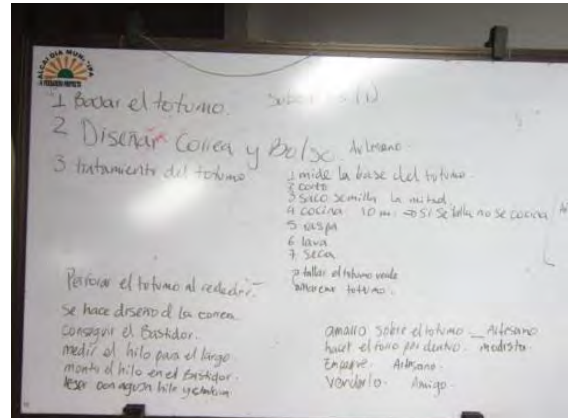 ALCALDIA MUN
1 Bajar el totumo.
2 Diseñar Correa y Bolso. Artesano.
3 tratamiento del totumo
1 mide la base del totumo.
2 corto
3 saco semilla la mitad
4 cocina 10 mi. si se talla no se cocina
5 raspa
6 lava
7 seca
tallar el totumo verde
totumo.
Perforar el totumo al rededor.
se hace diseño d la correa
conseguir el Bastidor.
medir el hilo para el largo
monta el hilo en el Bastidor.
teser con aguja hilo y
amarro sobre el totumo _ Artesano
hacer el forro por dentro. modista.
Empaque. Artesano.
Venderlo. Amigo.